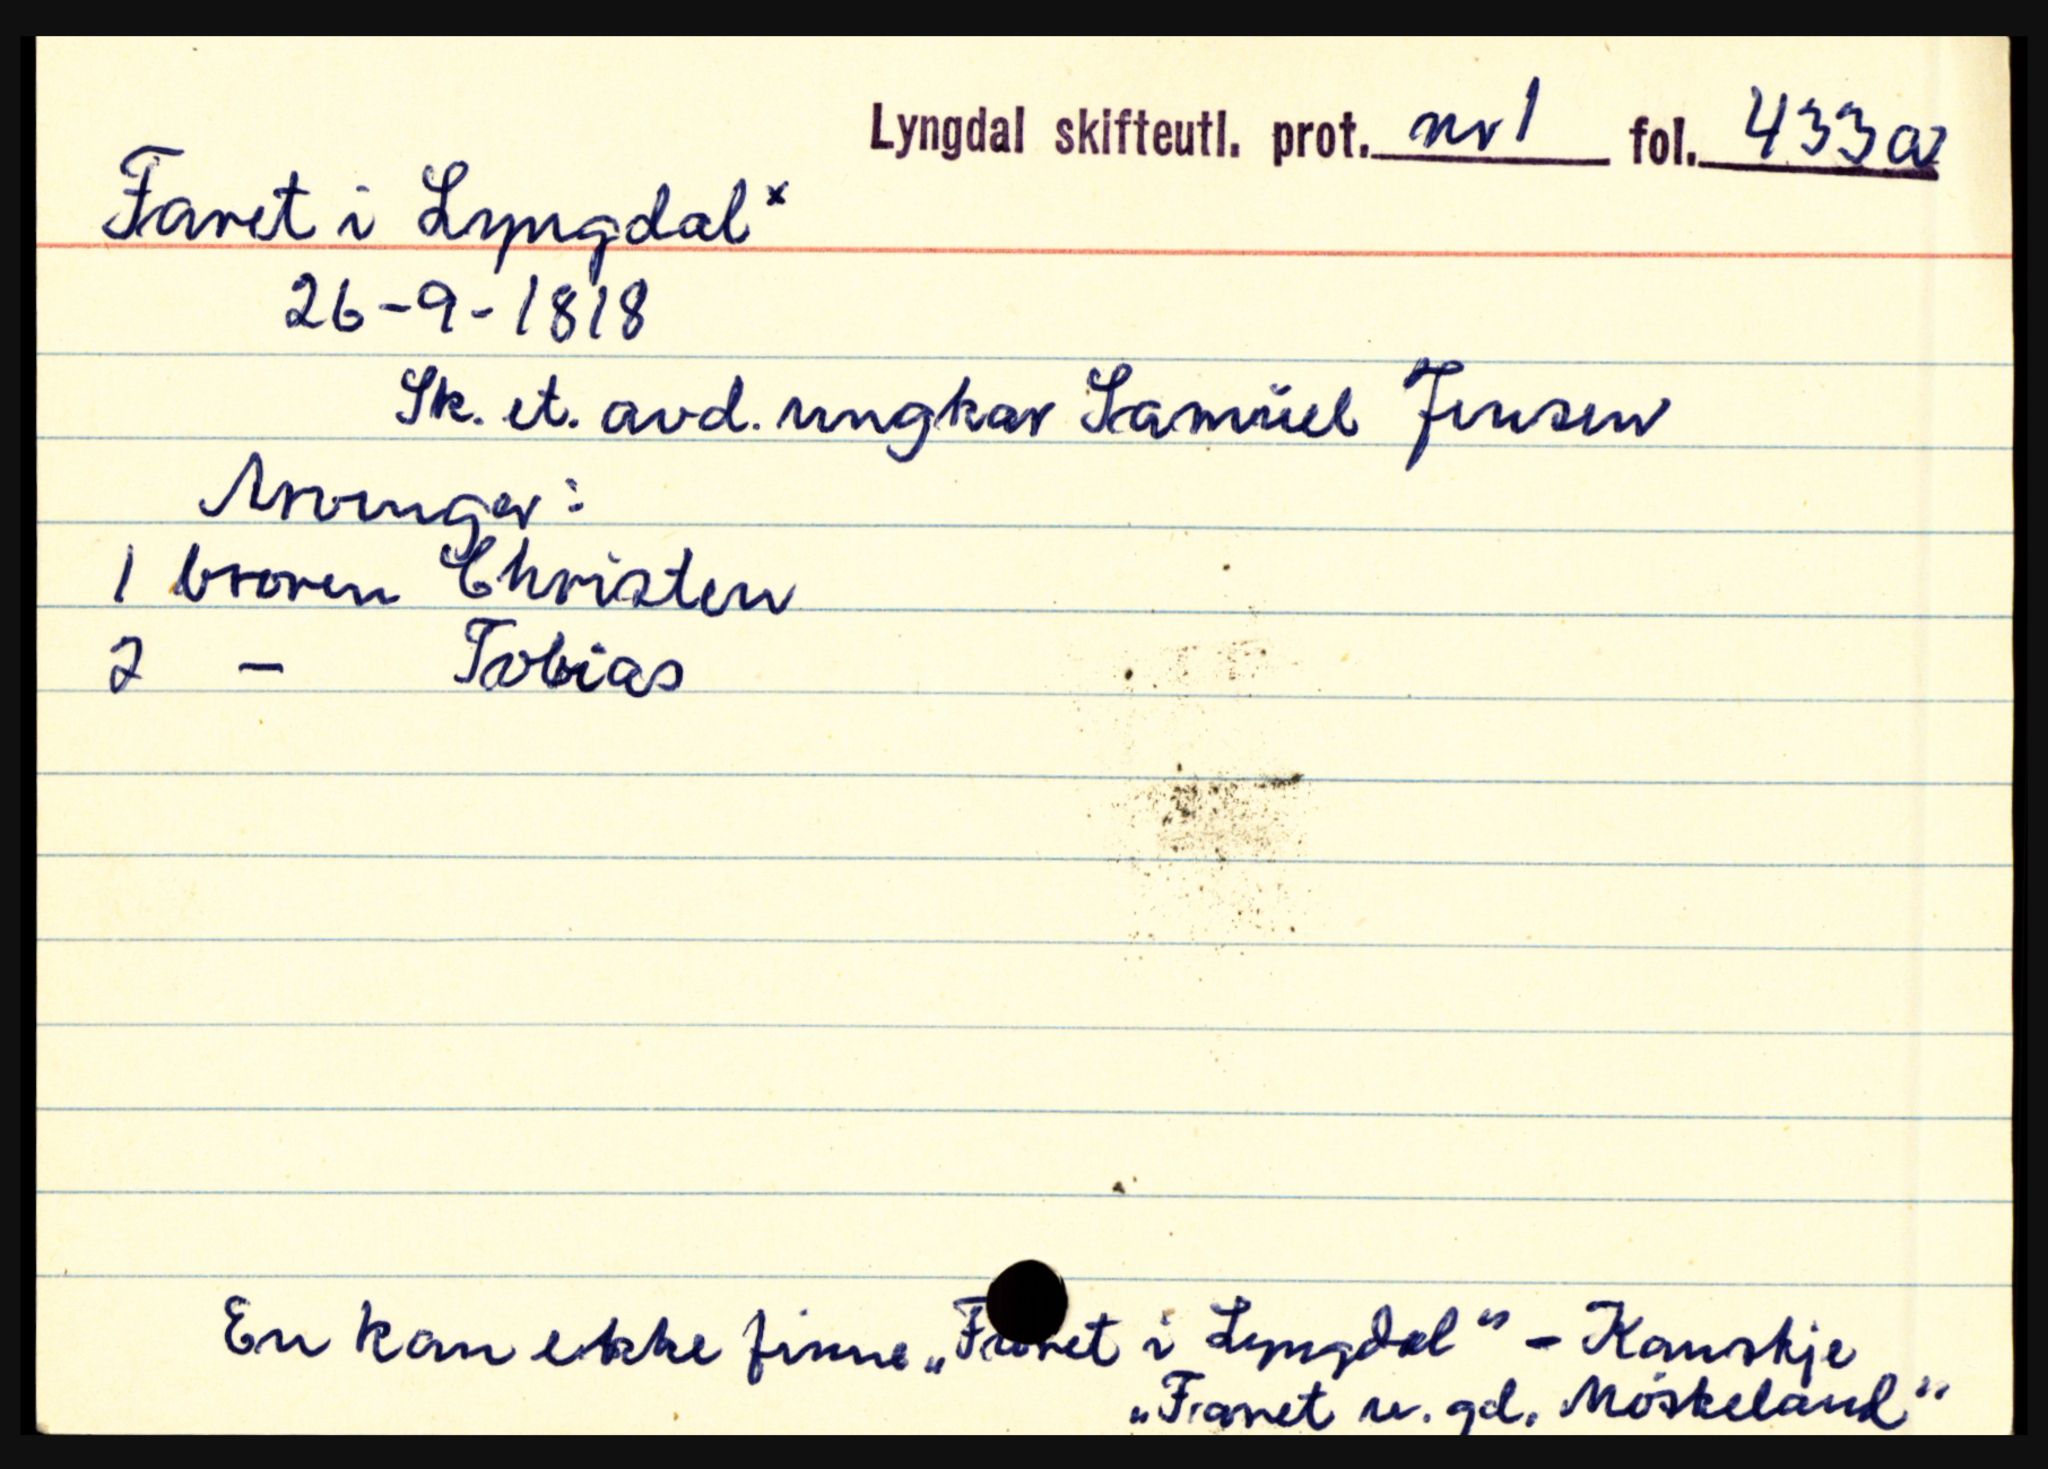 Lyngdal skifteutl. prot. nr 1 fol. 433a
Faret i Lyngdal x
26-9-1818
Sk. et. avd. ungkar Samuel Jensen
Arvinger:
1 broren Christen
2 – Tobias
En kan ekke finne „Faret i Lyngdal" – Kanskje
„Faret u. gd. Möskeland"